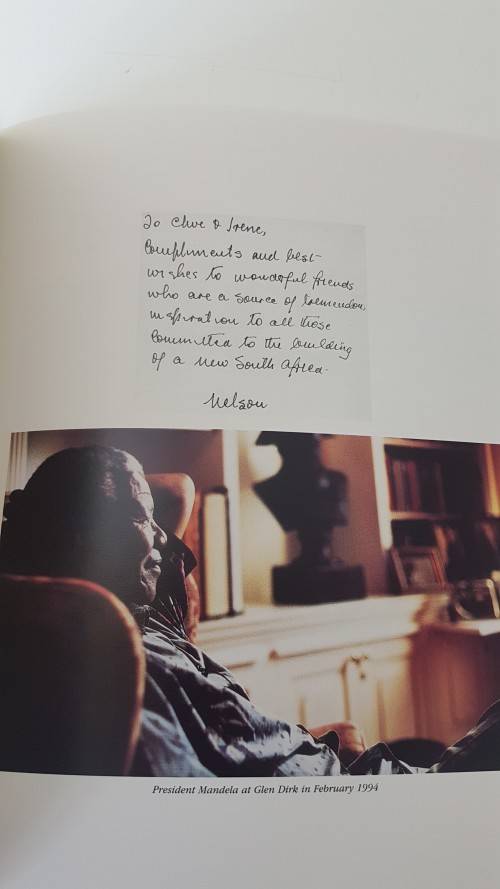 To Clive & Irene,
Compliments and best
wishes to wonderful friends
who are a source of tremendous
inspiration to all those
committed to the building
of a new South Africa.
Nelson
President Mandela at Glen Dirk in February 1994